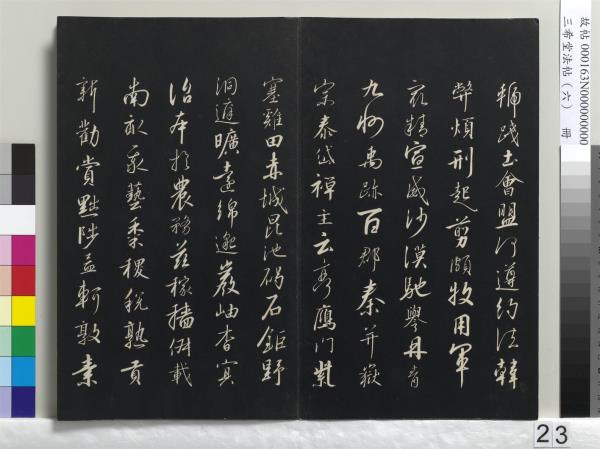 踐土會盟何遵約法韓
弊煩刑起翦頗牧用軍
最精宣威沙漠馳譽丹青
九州禹跡百郡秦并嶽
宗泰岱禪主云亭鴈門紫
塞雞田赤城昆池碣石鉅野
洞庭曠遠綿邈巖岫杳冥
治本於農務茲稼穡俶載
南畝我藝黍稷稅熟貢
新勸賞黜陟孟軻敦素
故帖 000163N000000000
三希堂法帖（六） 冊
23